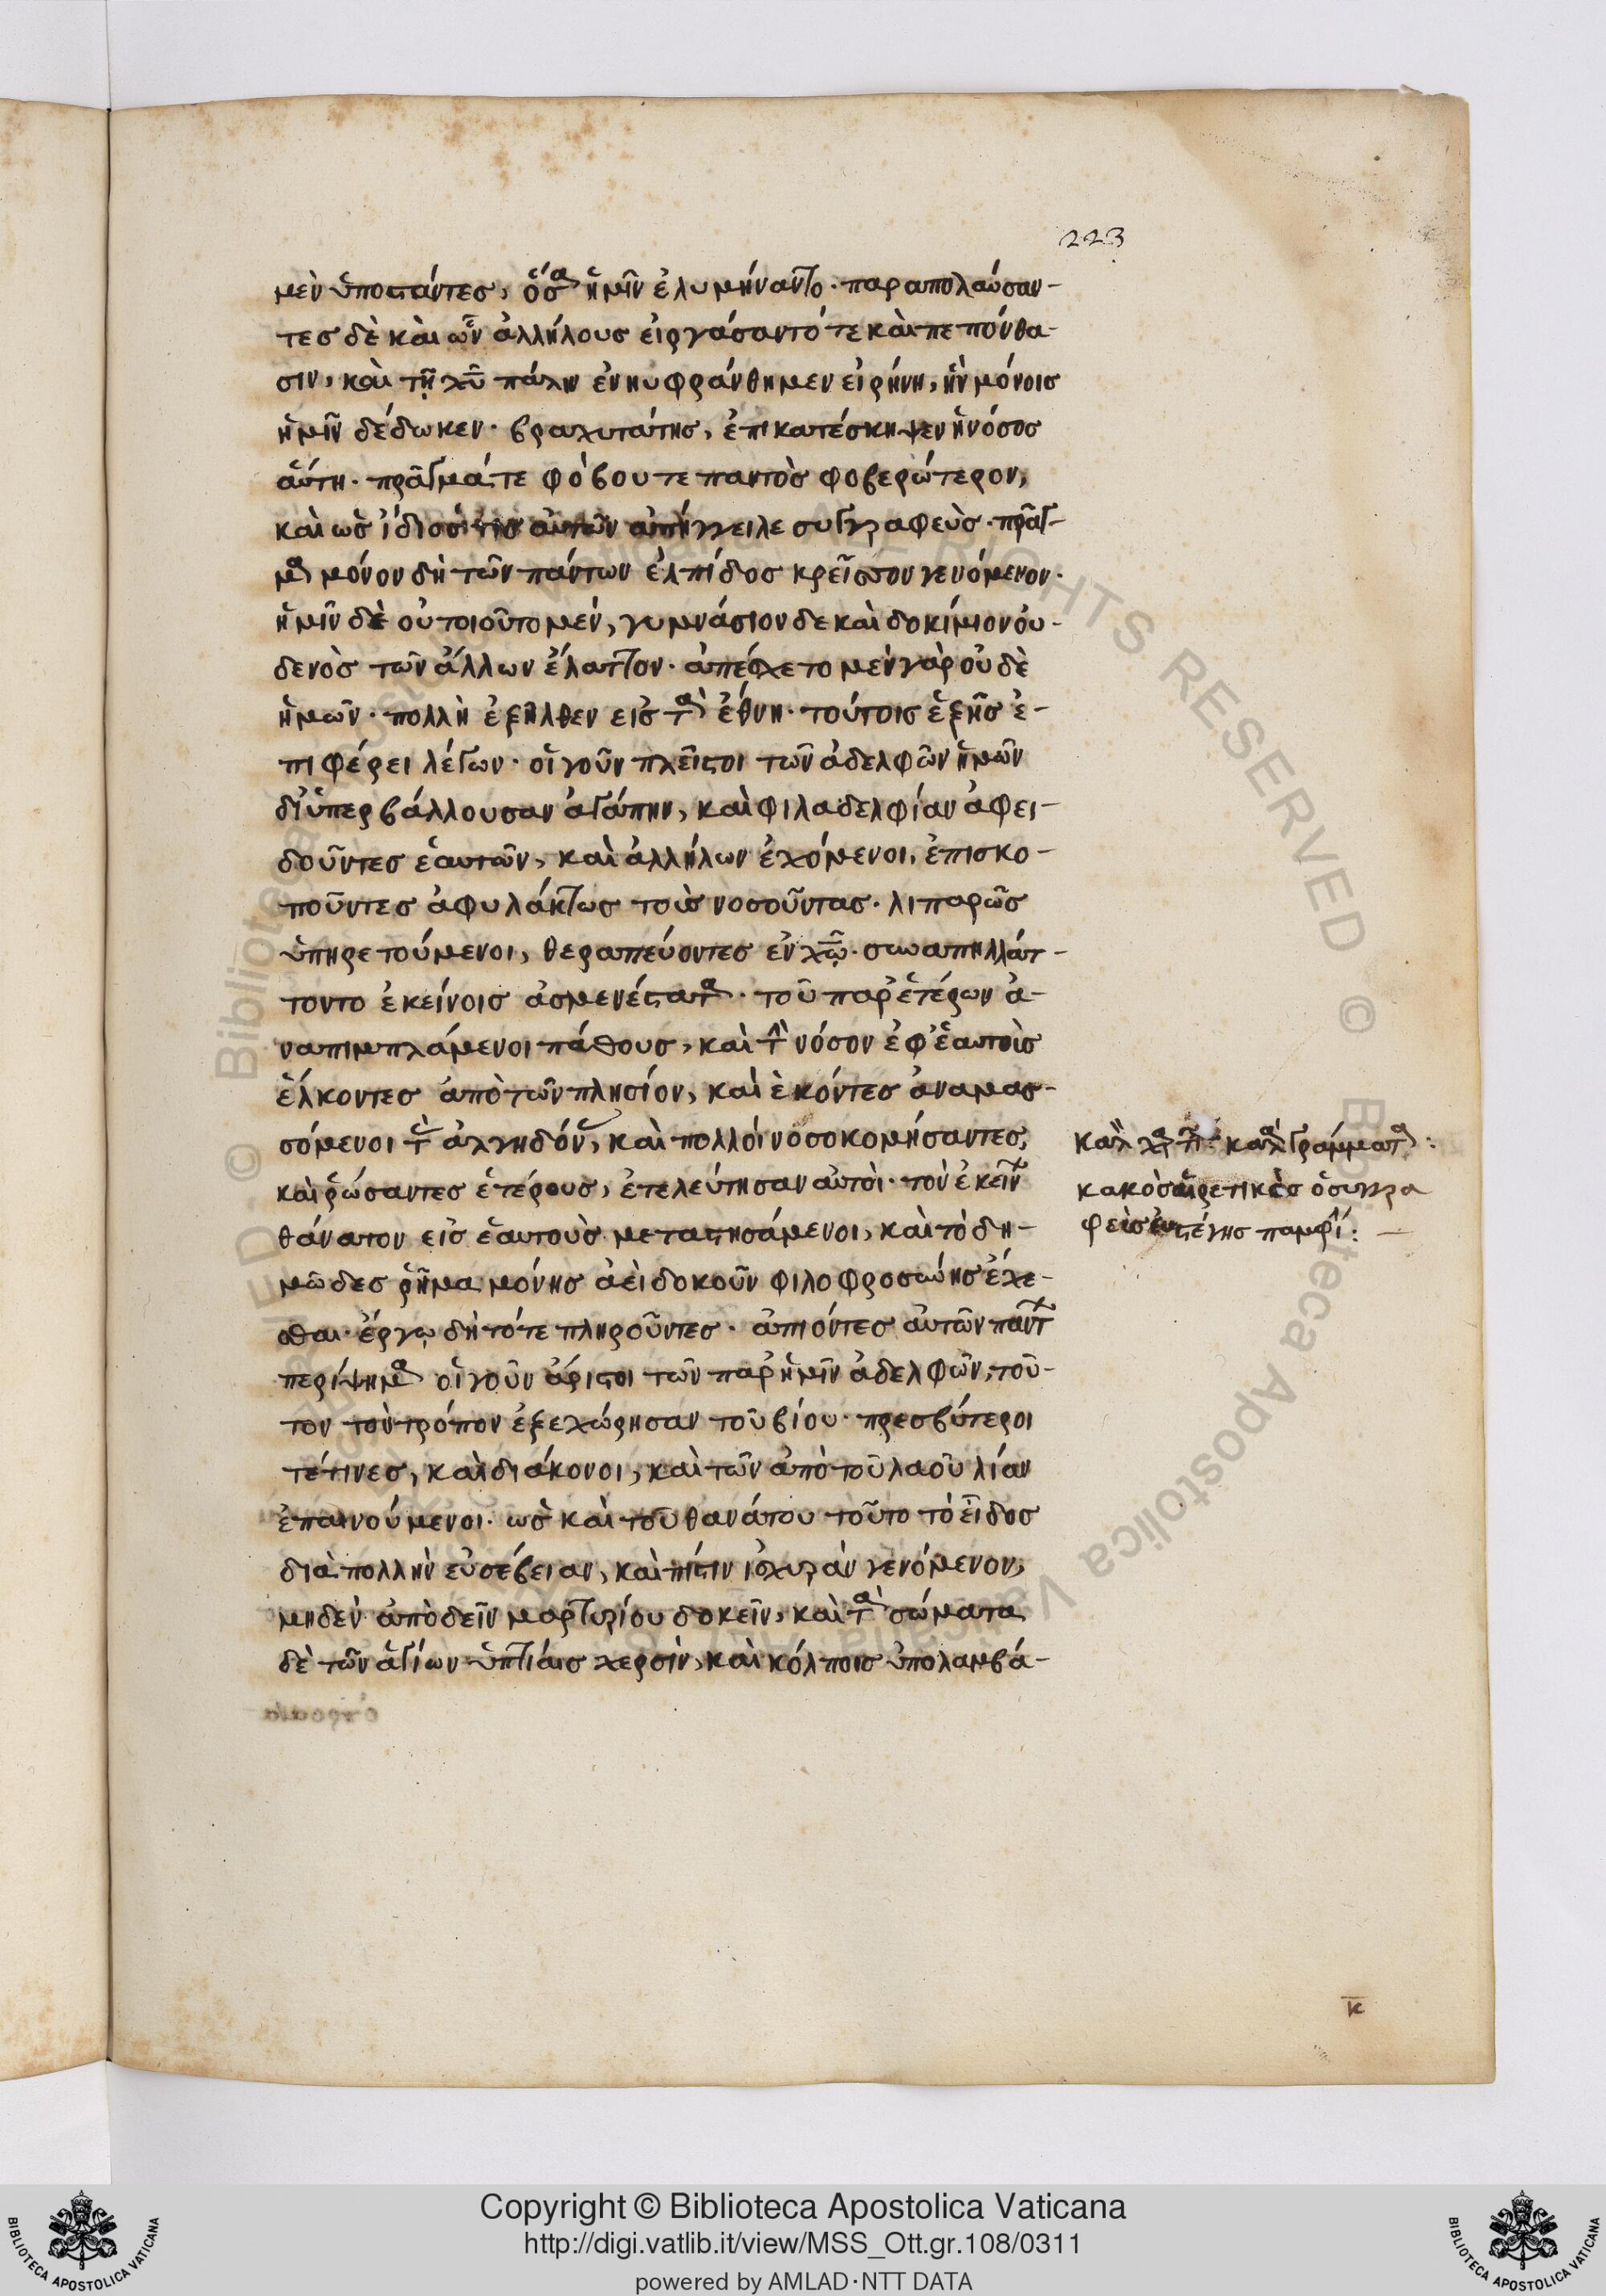 223
μὲν ὑποστάντες, ὅσα ἡμῖν ἐλυμήναντο· παραπολαύσαν-
τες δὲ καὶ ὧν ἀλλήλους εἰργάσαντό τε καὶ πεπόνθα-
σιν, καὶ τῇ χῦ πάλιν ἐνηυφράνθημεν εἰρήνη, ἣν μόνοις
ἡμῖν δέδωκεν· βραχυτάτης, ἐπικατέσκηψεν ἡ νόσος
αὕτη· πρᾶγμά τε φόβου τε παντὸς φοβερώτερον,
καὶ ὡς ἴδιός τις αὐτῶν ἀπήγγειλε συγγραφεὺς· πρᾶγ-
μα μόνον δὴ τῶν πάντων ἐλπίδος κρεῖσσον γενόμενον·
ἡμῖν δὲ οὐ τοιοῦτο μὲν, γυμνάσιον δε καὶ δοκίμιον οὐ-
δενὸς τῶν ἄλλων ἔλαττον· ἀπέσχετο μὲν γὰρ οὐδὲ
ἡμῶν· πολλὴ ἐξῆλθεν εἰς τὰ ἔθνη· τούτοις ἑξῆς ἐ-
πιφέρει λέγων· οἱ γοῦν πλεῖστοι τῶν ἀδελφῶν ἡμῶν
δι' ὑπερβάλλουσαν ἀγάπην, καὶ φιλαδελφίαν ἀφει-
δοῦντες ἑαυτῶν, καὶ ἀλλήλων ἐχόμενοι, ἐπισκο-
ποῦντες ἀφυλάκτως τοὺς νοσοῦντας· λιπαρῶς
ὑπηρετούμενοι, θεραπεύοντες ἐν χῶ· συναπηλλάτ-
τοντο ἐκείνοις ἀσμενέστατα· τοῦ παρ' ἑτέρων ἀ-
ναπιμπλάμενοι πάθους, καὶ τὴν νόσον ἐφ' ἑαυτοὺς
ἕλκοντες ἀπὸ τῶν πλησίον, καὶ ἑκόντες ἀναμασ-
σόμενοι τὰς ἀλγηδόνας, καὶ πολλοὶ νοσοκομήσαντες,
καὶ ῥώσαντες ἑτέρους, ἐτελεύτησαν αὐτοὶ· τὸν ἐκείνων
θάνατον εἰς ἑαυτοὺς μεταστησάμενοι, καὶ τὸ δη-
μῶδες ῥῆμα μόνης ἀεὶ δοκοῦν φιλοφροσύνης ἔχε-
σθαι· ἔργῳ δὴ τότε πληροῦντες· ἀπιόντες αὐτῶν πάντων
περίψημα οἱ γοῦν ἄριστοι τῶν παρ' ἡμῖν ἀδελφῶν, τοῦ-
τον τὸν τρόπον ἐξεχώρησαν τοῦ βίου· πρεσβύτεροι
τέ τινες, καὶ διάκονοι, καὶ τῶν ἀπὸ τοῦ λαοῦ λίαν
ἐπαινούμενοι· ὡς καὶ τοῦ θανάτου τοῦτο τὸ εἶδος
διὰ πολλὴν εὐσέβειαν, καὶ πίστιν ἰσχυρὰν γενόμενον,
μηδὲν ἀποδεῖν μαρτυρίου δοκεῖν, καὶ τὰ σώματα
δὲ τῶν ἁγίων ὑπτίαις χερσὶν, καὶ κόλποις ὑπολαμβά-
γράμματα:
κακὸς αἱρετικὸς ὁ συγγρα
φεὺς παμφί:
κ
Copyright © Biblioteca Apostolica Vaticana
http://digi.vatlib.it/view/MSS_Ott.gr.108/0311
powered by AMLAD·NTT DATA